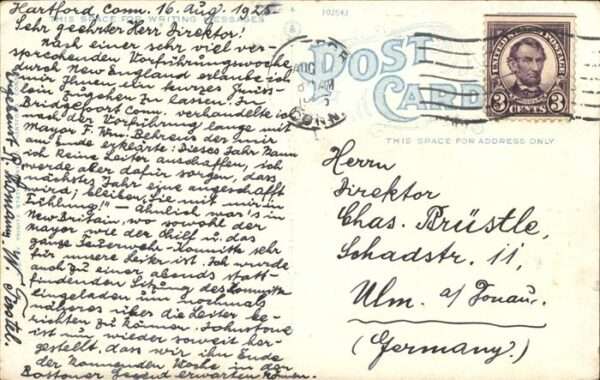 Hartford Conn. 16. Aug. 1925
102541
THIS SPACE FOR WRITING MESSAGES
Sehr geehrter Herr Direktor!
Nach einer sehr viel ver-
sprechenden Vorführungswoche
durch New England erlaube ich
mir Ihnen ein kurzes Briefe-
lein zugehen zu lassen. In
Bridgeport Conn. verhandelte ich
nach der Vorführung lange mit
Mayor F. Wm. Behrens der mir
am Ende erklärte: Dieses Jahr kann
ich keine Leiter anschaffen, ich
werde aber dafür sorgen, dass
nächstes Jahr eine angeschafft
wird; bleiben Sie mit mir in
Fühlung!" – Ähnlich war's in
New Britain, wo sowohl der
Mayor wie der Chief u. das
ganze Feuerwehr-Komitte sehr
für unsere Leiter ist. Ich wurde
auch zu einer abends statt-
findenden Sitzung des Komitte
eingeladen um nochmals
näheres über die Leiter be-
richten zu können. Johnstone
ist nun wieder soweit her-
gestellt, dass wir ihn Ende
der kommenden Woche in der
Bostoner Gegend erwarten können.
W. Jastel.
POST
CARD
THIS SPACE FOR ADDRESS ONLY
AUG
AM
CONN.
UNITED STATES POSTAGE
LINCOLN
3 CENTS 3
Herrn
Direktor
Chas. Brüstle,
Schadstr. 11,
Ulm. a/Donau.
(Germany.)